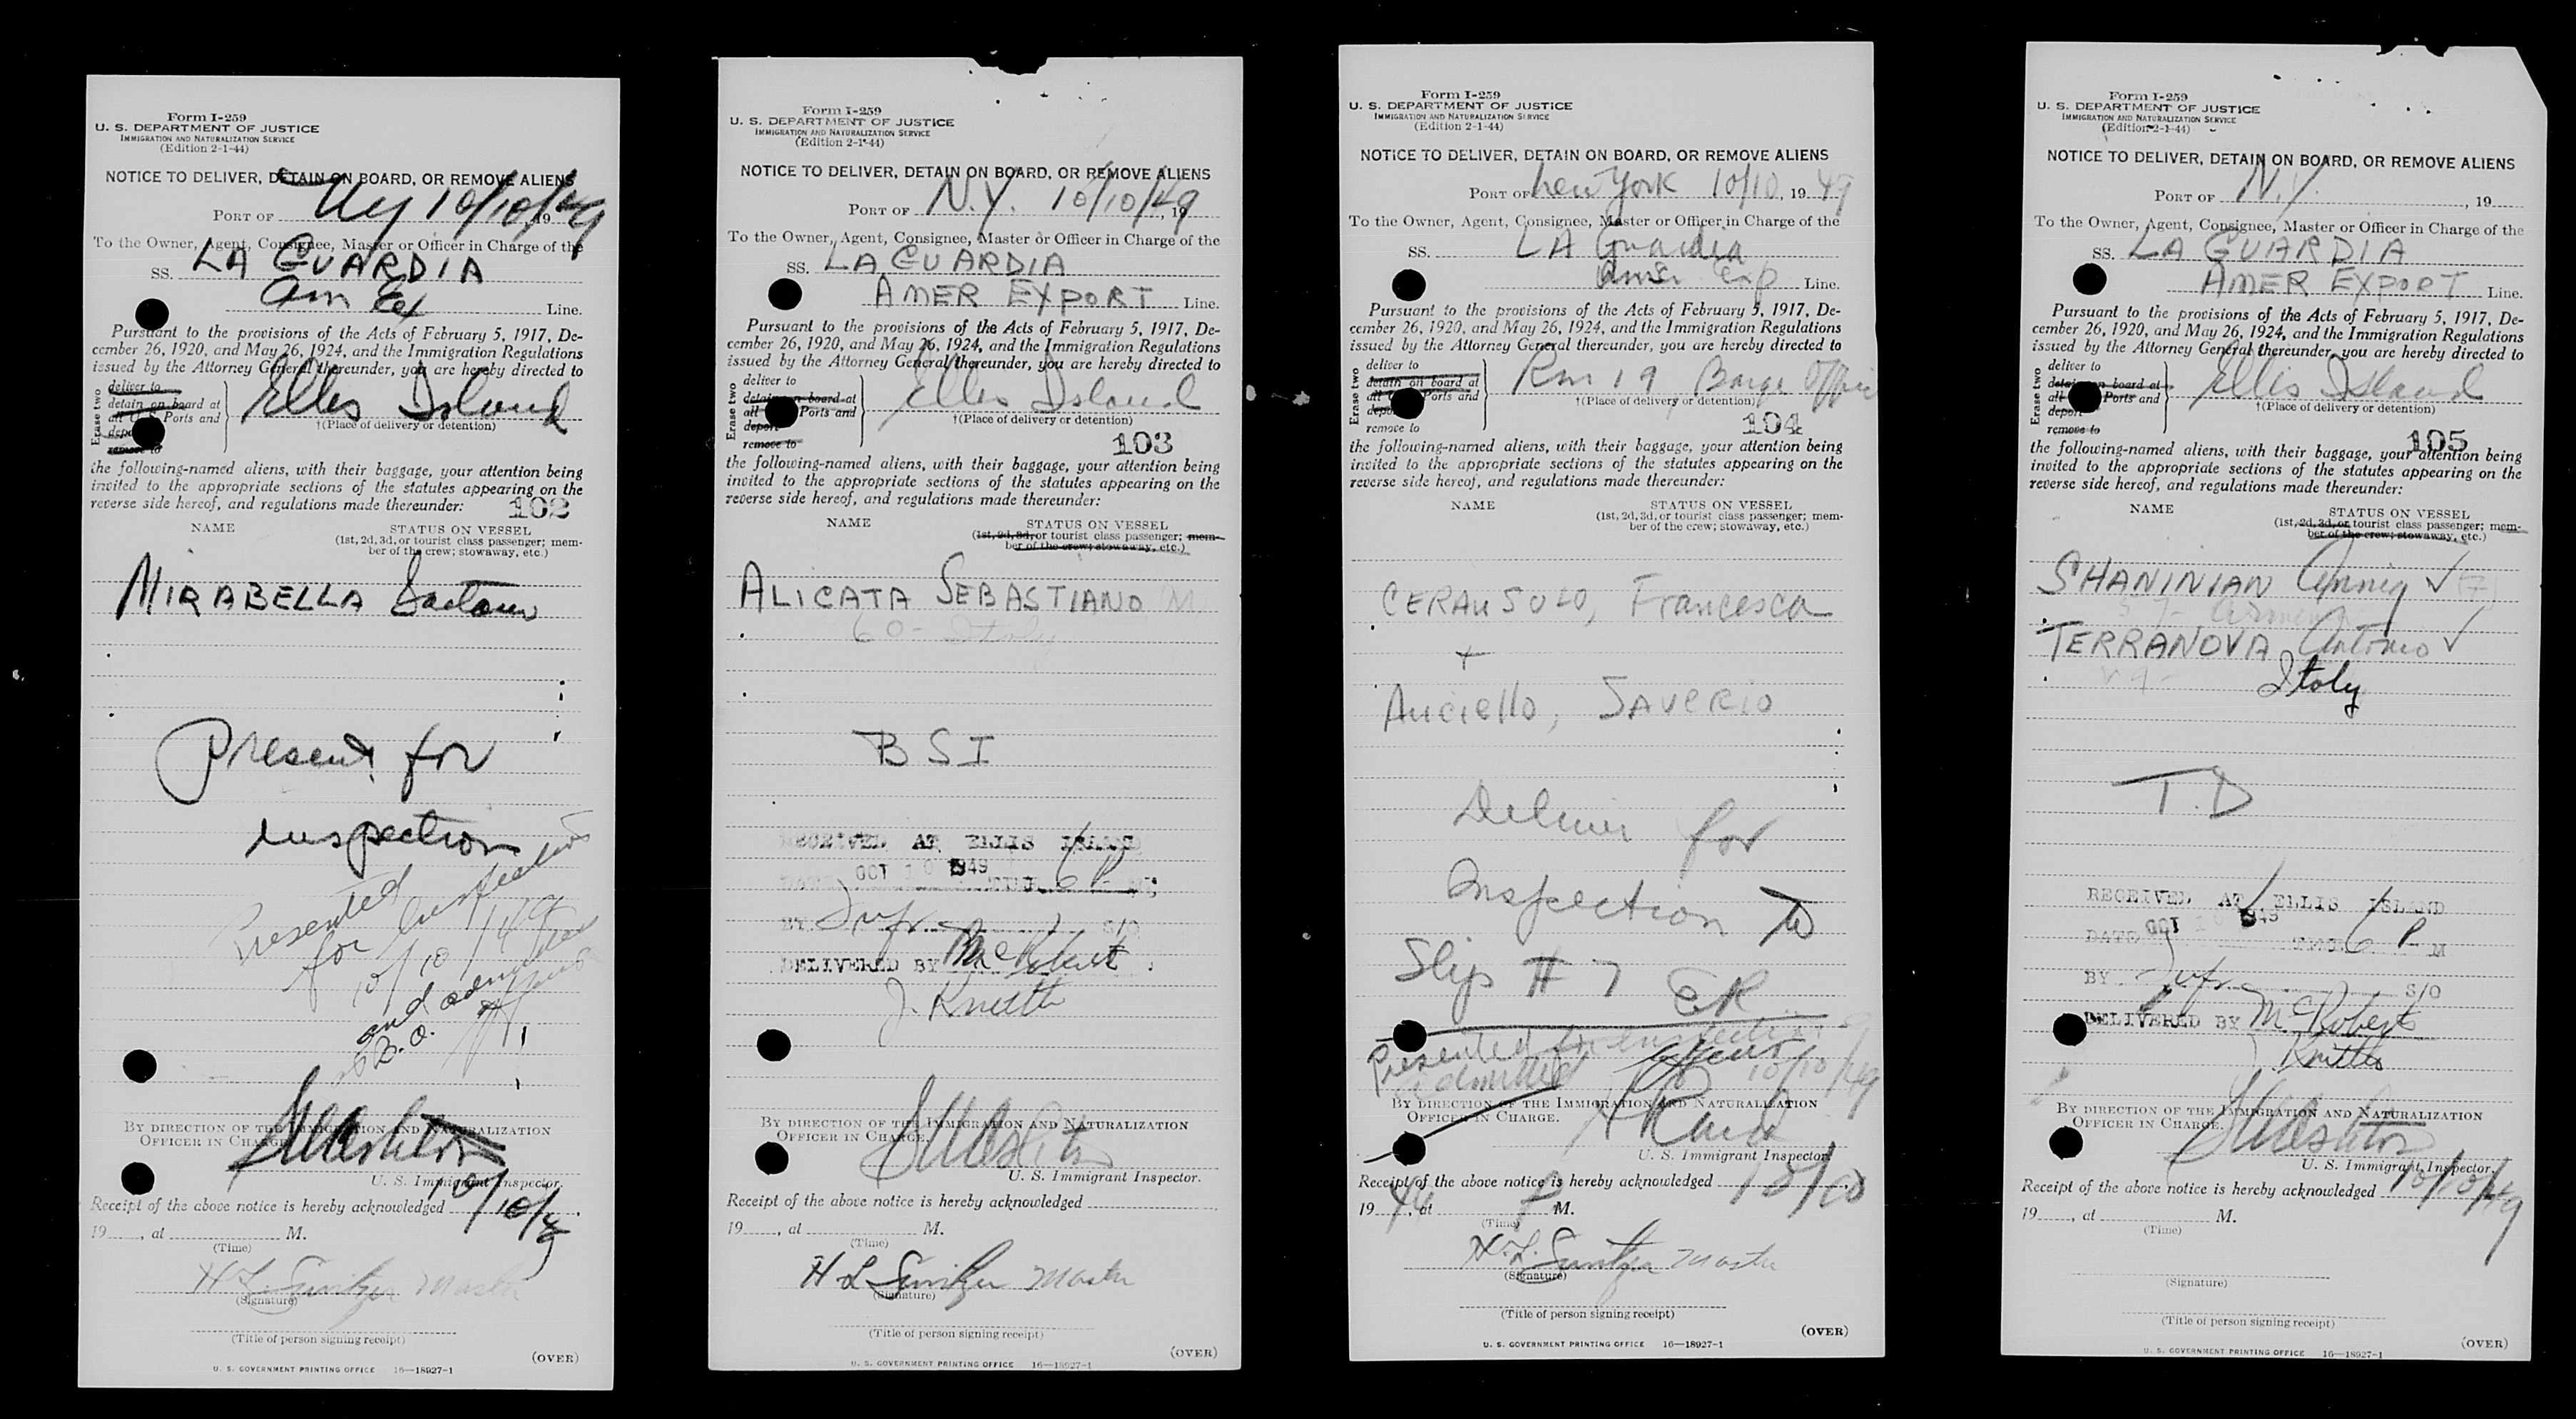 Form I-259
U. S. DEPARTMENT OF JUSTICE
IMMIGRATION AND NATURALIZATION SERVICE
(Edition 2-1-44)
NOTICE TO DELIVER, DETAIN ON BOARD, OR REMOVE ALIENS
PORT OF NY 10/10/49, 19
To the Owner, Agent, Consignee, Master or Officer in Charge of the
SS. LA GUARDIA
Am Ex Line.
Pursuant to the provisions of the Acts of February 5, 1917, De-
cember 26, 1920, and May 26, 1924, and the Immigration Regulations
issued by the Attorney General thereunder, you are hereby directed to
Erase two
deliver to
detain on board at
all U.S. Ports and
remove to
Ellis Island
†(Place of delivery or detention)
the following-named aliens, with their baggage, your attention being
invited to the appropriate sections of the statutes appearing on the
reverse side hereof, and regulations made thereunder:
102
NAME STATUS ON VESSEL
(1st, 2d, 3d, or tourist class passenger; mem-
ber of the crew; stowaway, etc.)
MIRABELLA Gaetano
Present for
inspection
Presented
for Inspection
10/10/49
and admitted
B.O.
BY DIRECTION OF THE IMMIGRATION AND NATURALIZATION
OFFICER IN CHARGE.
U. S. Immigrant Inspector.
Receipt of the above notice is hereby acknowledged 10/10/49
19, at M.
(Time)
H L Master
(Signature)
(Title of person signing receipt)
(OVER)
U. S. GOVERNMENT PRINTING OFFICE 16—18927-1
Form I-259
U. S. DEPARTMENT OF JUSTICE
IMMIGRATION AND NATURALIZATION SERVICE
(Edition 2-1-44)
NOTICE TO DELIVER, DETAIN ON BOARD, OR REMOVE ALIENS
PORT OF N.Y. 10/10/49, 19
To the Owner, Agent, Consignee, Master or Officer in Charge of the
SS. LA GUARDIA
AMER EXPORT Line.
Pursuant to the provisions of the Acts of February 5, 1917, De-
cember 26, 1920, and May 26, 1924, and the Immigration Regulations
issued by the Attorney General thereunder, you are hereby directed to
Erase two
deliver to
detain on board at
all Ports and
deport
remove to
Ellis Island
†(Place of delivery or detention)
103
the following-named aliens, with their baggage, your attention being
invited to the appropriate sections of the statutes appearing on the
reverse side hereof, and regulations made thereunder:
NAME STATUS ON VESSEL
(1st, 2d, 3d, or tourist class passenger; mem-
ber of the crew; stowaway, etc.)
ALICATA SEBASTIANO M
60- Italy
BSI
RECEIVED AT ELLIS ISLAND
DATE OCT 10 1949 TIME 6 P M
BY S/O
DELIVERED BY McRoberts
J. Knuttle
BY DIRECTION OF THE IMMIGRATION AND NATURALIZATION
OFFICER IN CHARGE.
U. S. Immigrant Inspector.
Receipt of the above notice is hereby acknowledged
19, at M.
(Time)
H L Master
(Signature)
(Title of person signing receipt)
(OVER)
U. S. GOVERNMENT PRINTING OFFICE 16—18927-1
Form I-259
U. S. DEPARTMENT OF JUSTICE
IMMIGRATION AND NATURALIZATION SERVICE
(Edition 2-1-44)
NOTICE TO DELIVER, DETAIN ON BOARD, OR REMOVE ALIENS
PORT OF New York 10/10, 1949
To the Owner, Agent, Consignee, Master or Officer in Charge of the
SS. LA Guardia
Amer Exp Line.
Pursuant to the provisions of the Acts of February 5, 1917, De-
cember 26, 1920, and May 26, 1924, and the Immigration Regulations
issued by the Attorney General thereunder, you are hereby directed to
Erase two
deliver to
detain on board at
all Ports and
remove to
Rm 19 Barge Office
†(Place of delivery or detention)
104
the following-named aliens, with their baggage, your attention being
invited to the appropriate sections of the statutes appearing on the
reverse side hereof, and regulations made thereunder:
NAME STATUS ON VESSEL
(1st, 2d, 3d, or tourist class passenger; mem-
ber of the crew; stowaway, etc.)
CERAUSOLO, Francesca
+
Auciello, SAVERIO
Deliver for
Inspection to
Slip # 7
Presented for inspection
admitted 10/10/49
BY DIRECTION OF THE IMMIGRATION AND NATURALIZATION
OFFICER IN CHARGE.
U. S. Immigrant Inspector.
Receipt of the above notice is hereby acknowledged 10/10
1949, at P. M.
(Time)
H. L. Master
(Signature)
(Title of person signing receipt)
(OVER)
U. S. GOVERNMENT PRINTING OFFICE 16—18927-1
Form I-259
U. S. DEPARTMENT OF JUSTICE
IMMIGRATION AND NATURALIZATION SERVICE
(Edition 2-1-44)
NOTICE TO DELIVER, DETAIN ON BOARD, OR REMOVE ALIENS
PORT OF N.Y., 19
To the Owner, Agent, Consignee, Master or Officer in Charge of the
SS. LA GUARDIA
AMER EXPORT Line.
Pursuant to the provisions of the Acts of February 5, 1917, De-
cember 26, 1920, and May 26, 1924, and the Immigration Regulations
issued by the Attorney General thereunder, you are hereby directed to
Erase two
deliver to
detain on board at
all Ports and
deport
remove to
Ellis Island
†(Place of delivery or detention)
105
the following-named aliens, with their baggage, your attention being
invited to the appropriate sections of the statutes appearing on the
reverse side hereof, and regulations made thereunder:
NAME STATUS ON VESSEL
(1st, 2d, 3d, or tourist class passenger; mem-
ber of the crew; stowaway, etc.)
SHANINIAN Annig ✓
TERRANOVA Antonio ✓
Italy
T.D
RECEIVED AT ELLIS ISLAND
DATE OCT 10 1949 TIME 6 P M
BY S/O
DELIVERED BY McRoberts
Knuttle
BY DIRECTION OF THE IMMIGRATION AND NATURALIZATION
OFFICER IN CHARGE.
U. S. Immigrant Inspector.
Receipt of the above notice is hereby acknowledged 10/10/49
19, at M.
(Time)
(Signature)
(Title of person signing receipt)
(OVER)
U. S. GOVERNMENT PRINTING OFFICE 16—18927-1